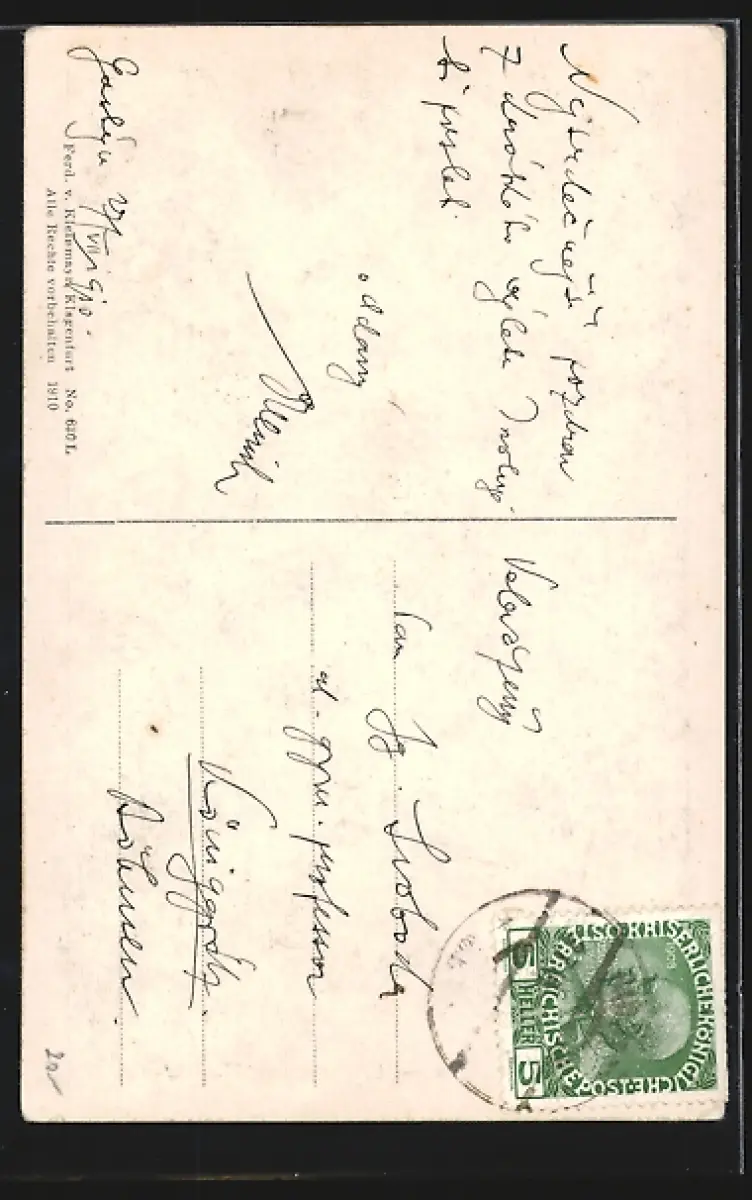 Nejsrdečnější pozdrav
z
výletu
ti posílá
oddaný
1910.
Ferd. v. Kleinmayr, Klagenfurt No. 630 L
Alle Rechte vorbehalten 1910
Velectěný
Pan Jg. Svoboda
gymn. professor
Königgrätz.
Böhmen.
20
KAISERLICHE KÖNIGLICHE
ÖSTERREICHISCHE POST
1908
5 HELLER 5